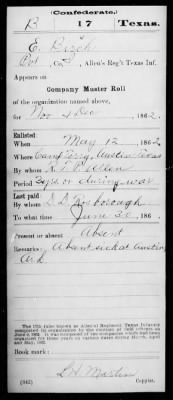 (Confederate.)
B 17 Texas.
E. Birch
Pvt, Co. , Allen's Reg't Texas Inf.
Appears on
Company Muster Roll
of the organization named above,
for Nov & Dec , 1862.
Enlisted:
When May 12 , 1862.
Where Camp Terry, Austin Texas
By whom R. T. P. Allen
Period 3 yrs or during war
Last paid:
By whom D. D. Rosborough
To what time June 30 , 186 .
Present or absent Absent
Remarks: Absent sick at Austin
Ark.
The 17th (also known as Allen's) Regiment Texas Infantry
Book mark:
(642) L H Martin
Copyist.